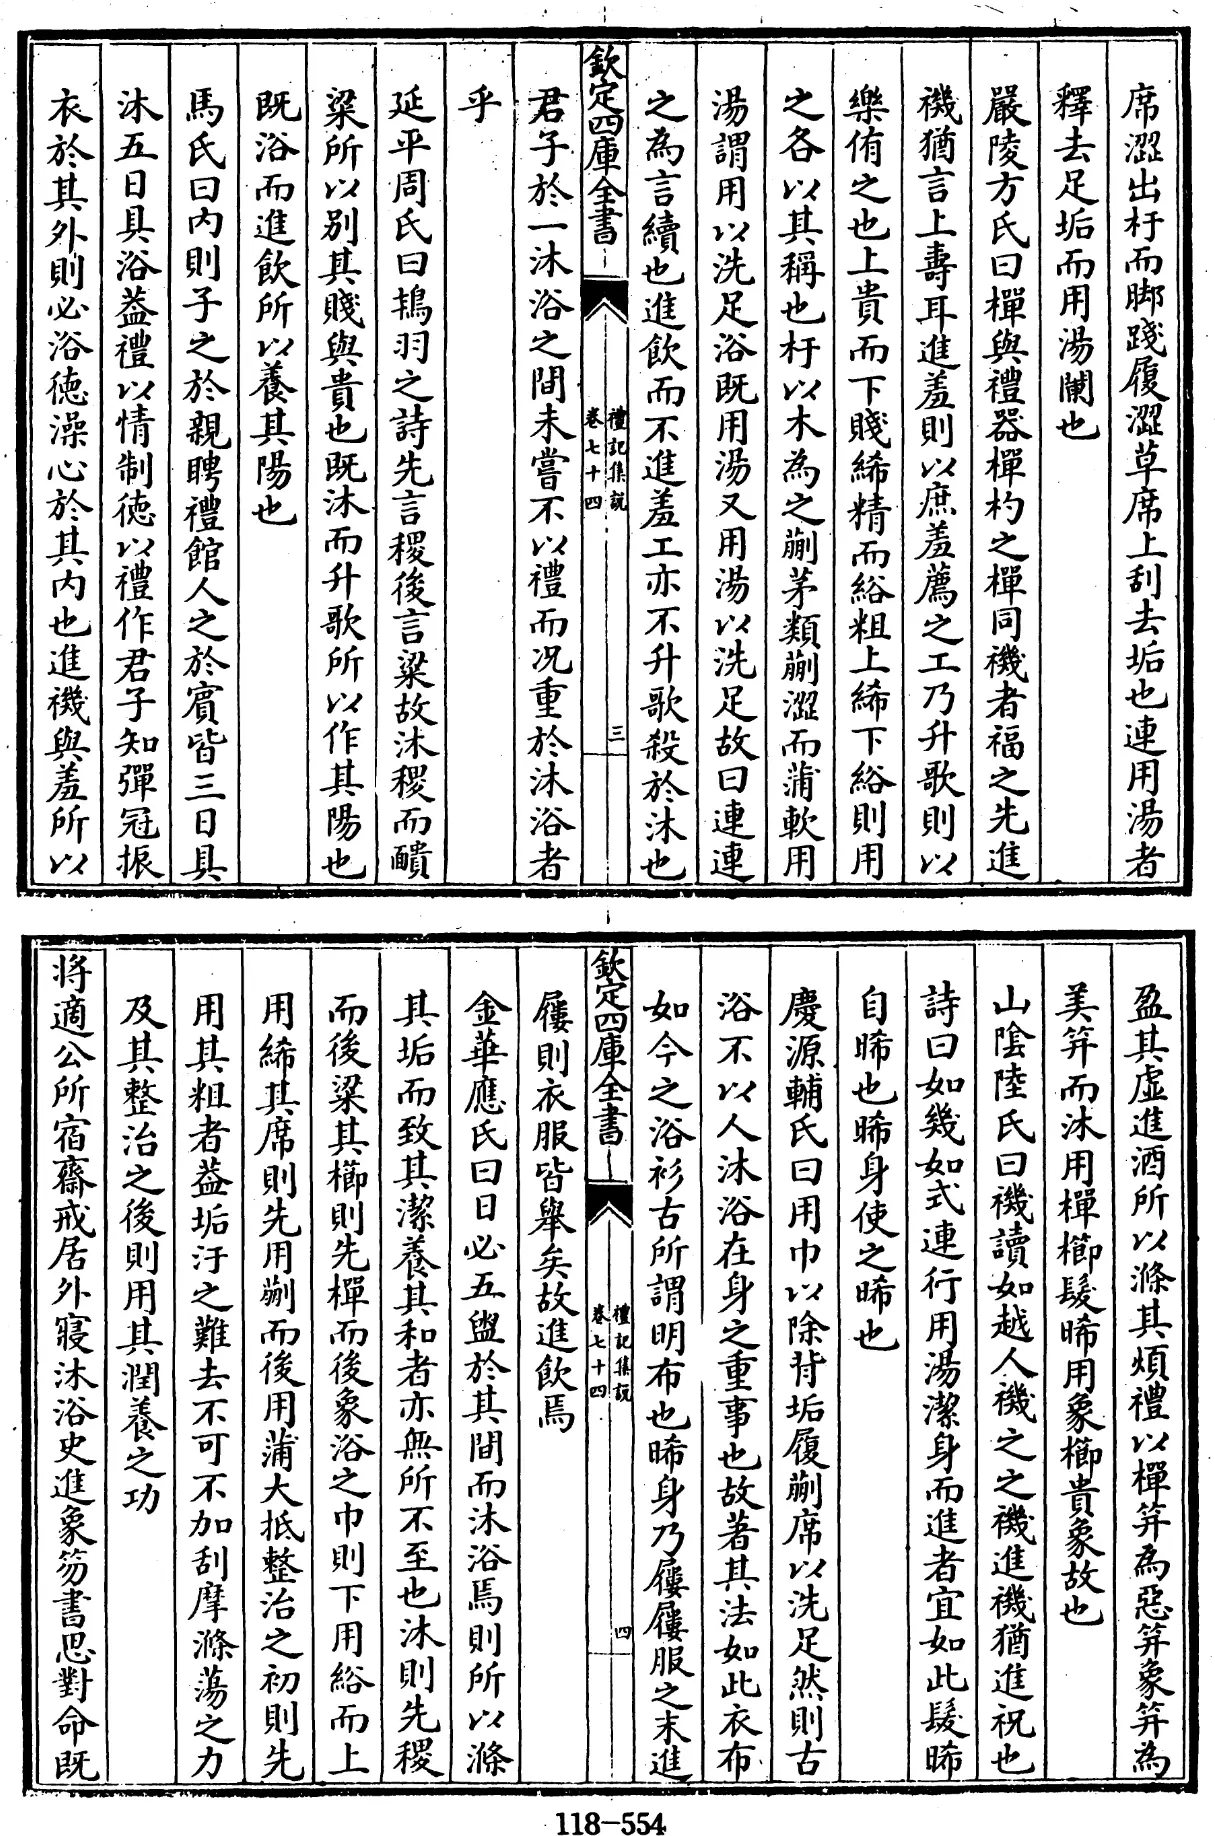 席澀出杅而脚踐履澀草席上刮去垢也連用湯者
釋去足垢而用湯闌也
嚴陵方氏曰樿與禮器樿杓之樿同禨者福之先進
禨猶言上壽耳進羞則以庶羞薦之工乃升歌則以
樂侑之也上貴而下賤絺精而綌粗上絺下綌則用
之各以其稱也杅以木為之蒯茅類蒯澀而蒲軟用
湯謂用以洗足浴既用湯又用湯以洗足故曰連連
之為言續也進飲而不進羞工亦不升歌殺於沐也
欽定四庫全書
禮記集說
卷七十四
三
君子於一沐浴之間未嘗不以禮而況重於沐浴者
乎
延平周氏曰鴇羽之詩先言稷後言粱故沐稷而靧
粱所以別其賤與貴也既沐而升歌所以作其陽也
既浴而進飲所以養其陽也
馬氏曰內則子之於親聘禮館人之於賓皆三日具
沐五日具浴葢禮以情制徳以禮作君子知彈冠振
衣於其外則必浴徳澡心於其内也進禨與羞所以
盈其虛進酒所以滌其煩禮以樿笄為惡笄象笄為
美笄而沐用樿櫛髮晞用象櫛貴象故也
山陰陸氏曰禨讀如越人禨之之禨進禨猶進祝也
詩曰如幾如式連行用湯潔身而進者宜如此髮晞
自晞也晞身使之晞也
慶源輔氏曰用巾以除背垢履蒯席以洗足然則古
浴不以人沐浴在身之重事也故著其法如此衣布
如今之浴衫古所謂明布也晞身乃屨屨服之末進
欽定四庫全書
禮記集說
卷七十四
四
屨則衣服皆舉矣故進飲焉
金華應氏曰日必五盥於其間而沐浴焉則所以滌
其垢而致其潔養其和者亦無所不至也沐則先稷
而後粱其櫛則先樿而後象浴之巾則下用綌而上
用絺其席則先用蒯而後用蒲大抵整治之初則先
用其粗者葢垢汙之難去不可不加刮摩滌蕩之力
及其整治之後則用其潤養之功
將適公所宿齋戒居外寢沐浴史進象笏書思對命既
118-554